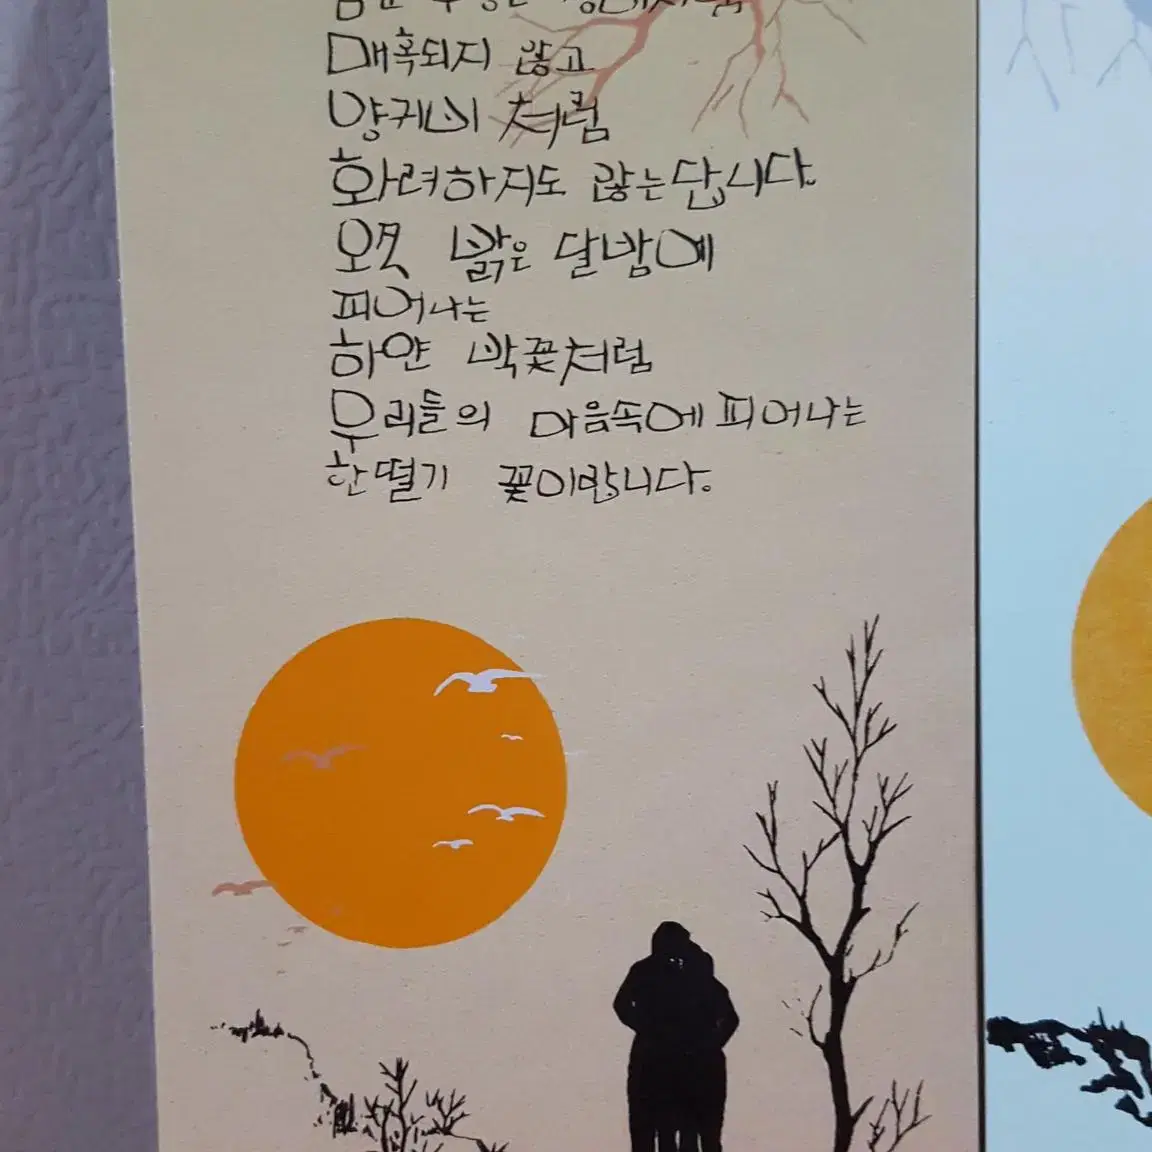 매혹되지 않고
양귀비 처럼
화려하지도 않는답니다.
오직 밝은 달밤에
피어나는
하얀 박꽃처럼
우리들의 마음속에 피어나는
한떨기 꽃이랍니다.